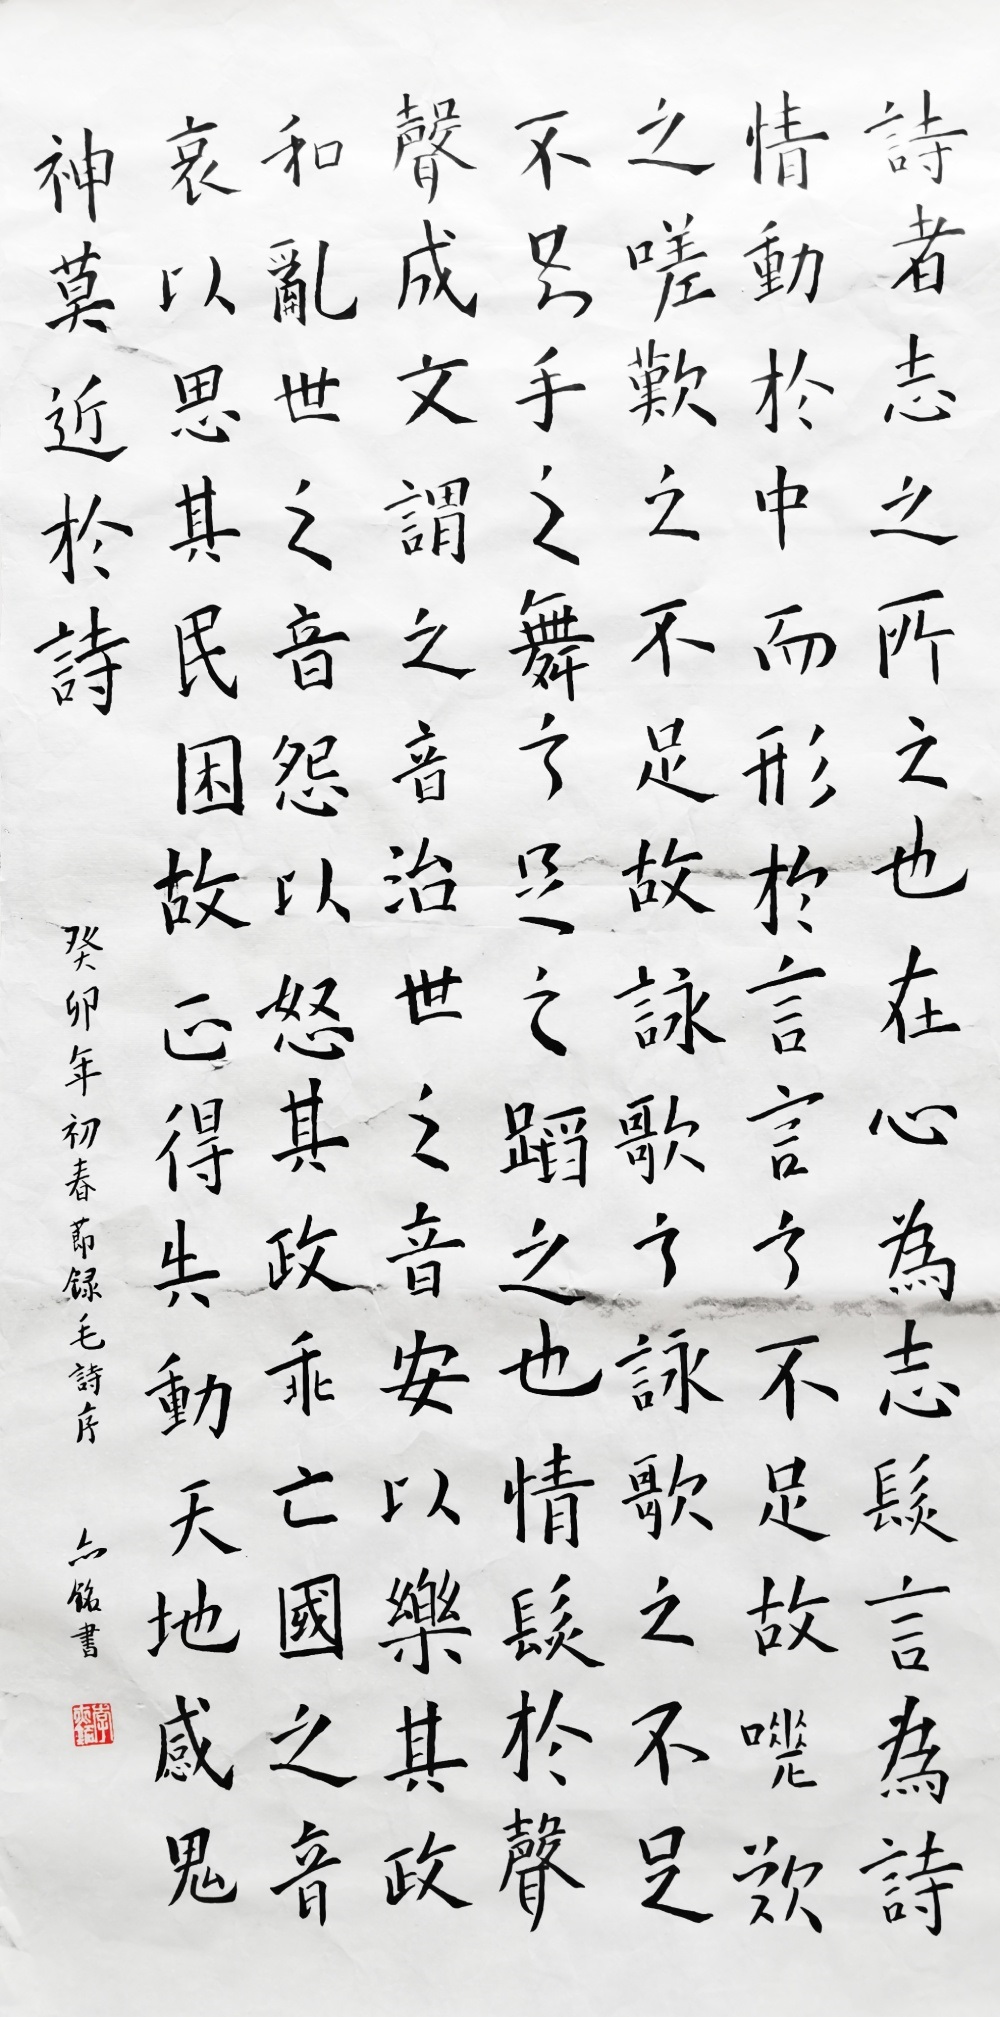 詩者志之所之也在心為志髮言為詩
情動於中而形於言言之不足故嗟歎
之嗟歎之不足故詠歌之詠歌之不足
不知手之舞之足之蹈之也情髮於聲
聲成文謂之音治世之音安以樂其政
和亂世之音怨以怒其政乖亡國之音
哀以思其民困故正得失動天地感鬼
神莫近於詩
癸卯年初春節録毛詩序 亦銘書